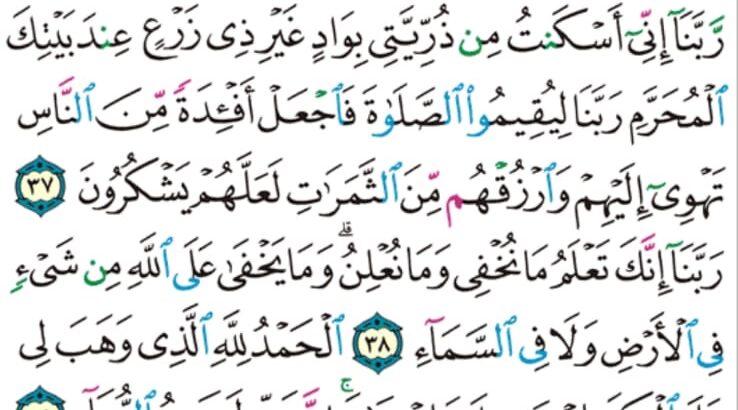 رَّبَّنَآ إِنِّىٓ أَسْكَنتُ مِن ذُرِّيَّتِى بِوَادٍ غَيْرِ ذِى زَرْعٍ عِندَ بَيْتِكَ
ٱلْمُحَرَّمِ رَبَّنَا لِيُقِيمُوا۟ ٱلصَّلَوٰةَ فَٱجْعَلْ أَفْـِٔدَةً مِّنَ ٱلنَّاسِ
تَهْوِىٓ إِلَيْهِمْ وَٱرْزُقْهُم مِّنَ ٱلثَّمَرَٰتِ لَعَلَّهُمْ يَشْكُرُونَ ٣٧
رَبَّنَآ إِنَّكَ تَعْلَمُ مَا نُخْفِى وَمَا نُعْلِنُ ۗ وَمَا يَخْفَىٰ عَلَى ٱللَّهِ مِن شَىْءٍ
فِى ٱلْأَرْضِ وَلَا فِى ٱلسَّمَآءِ ٣٨ ٱلْحَمْدُ لِلَّهِ ٱلَّذِى وَهَبَ لِى